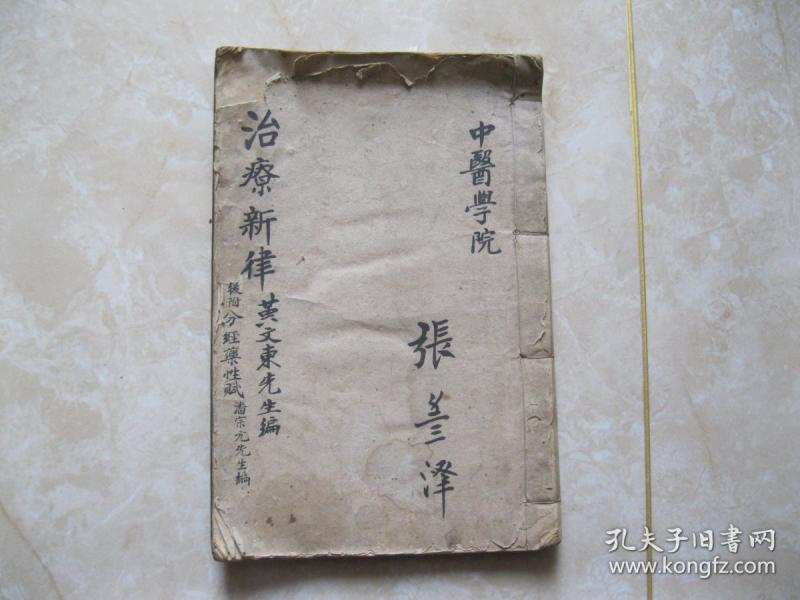 中醫學院
張
澤
治療新律
黃文東先生編
後附分經藥性賦
潘宗元先生編
孔夫子旧书网
www.kongfz.com